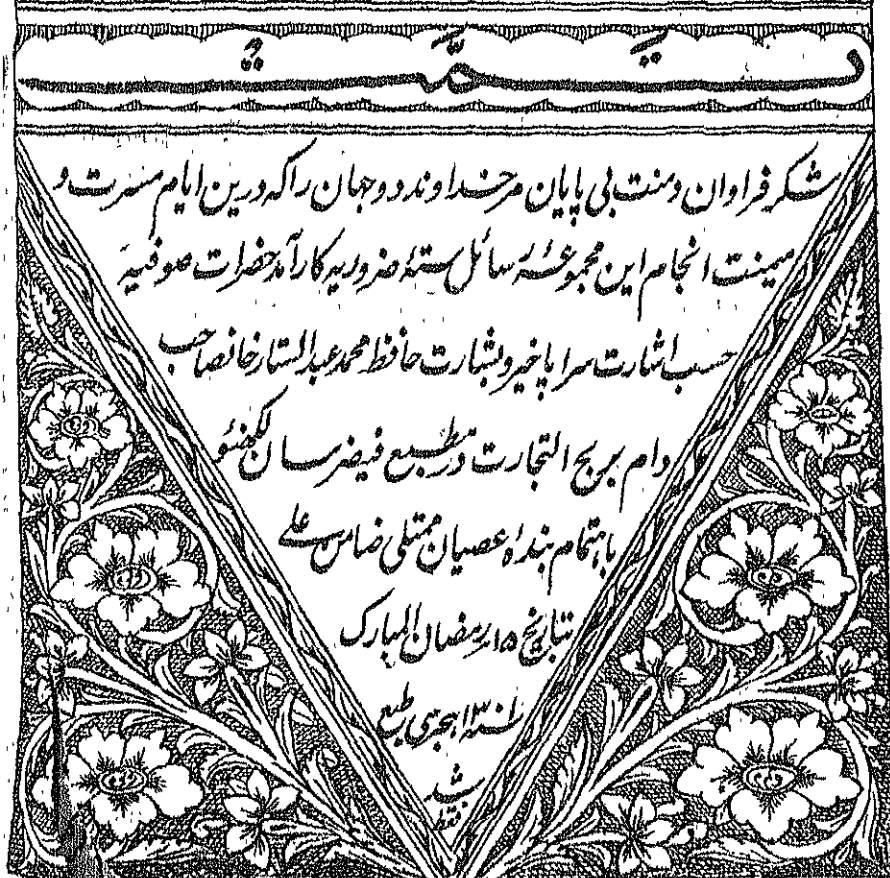 تمّت
شکر فراوان و منت بی پایان مر خداوند دو جهان را که درین ایام مسرت و
میمنت انجام این مجموعۂ رسائل ستۂ ضروریه کارآمد حضرات صوفیۂ
حسب اشارت سراپا خیر و بشارت حافظ محمد عبدالستار خانصاحب
دام بربح التجارت در مطبع فیض رسان لکهنئو
باهتمام بندۂ عصیان ممتلی ضامن علی
بتاریخ ۱۵ رمضان المبارک
هجری طبع
شد
فقط